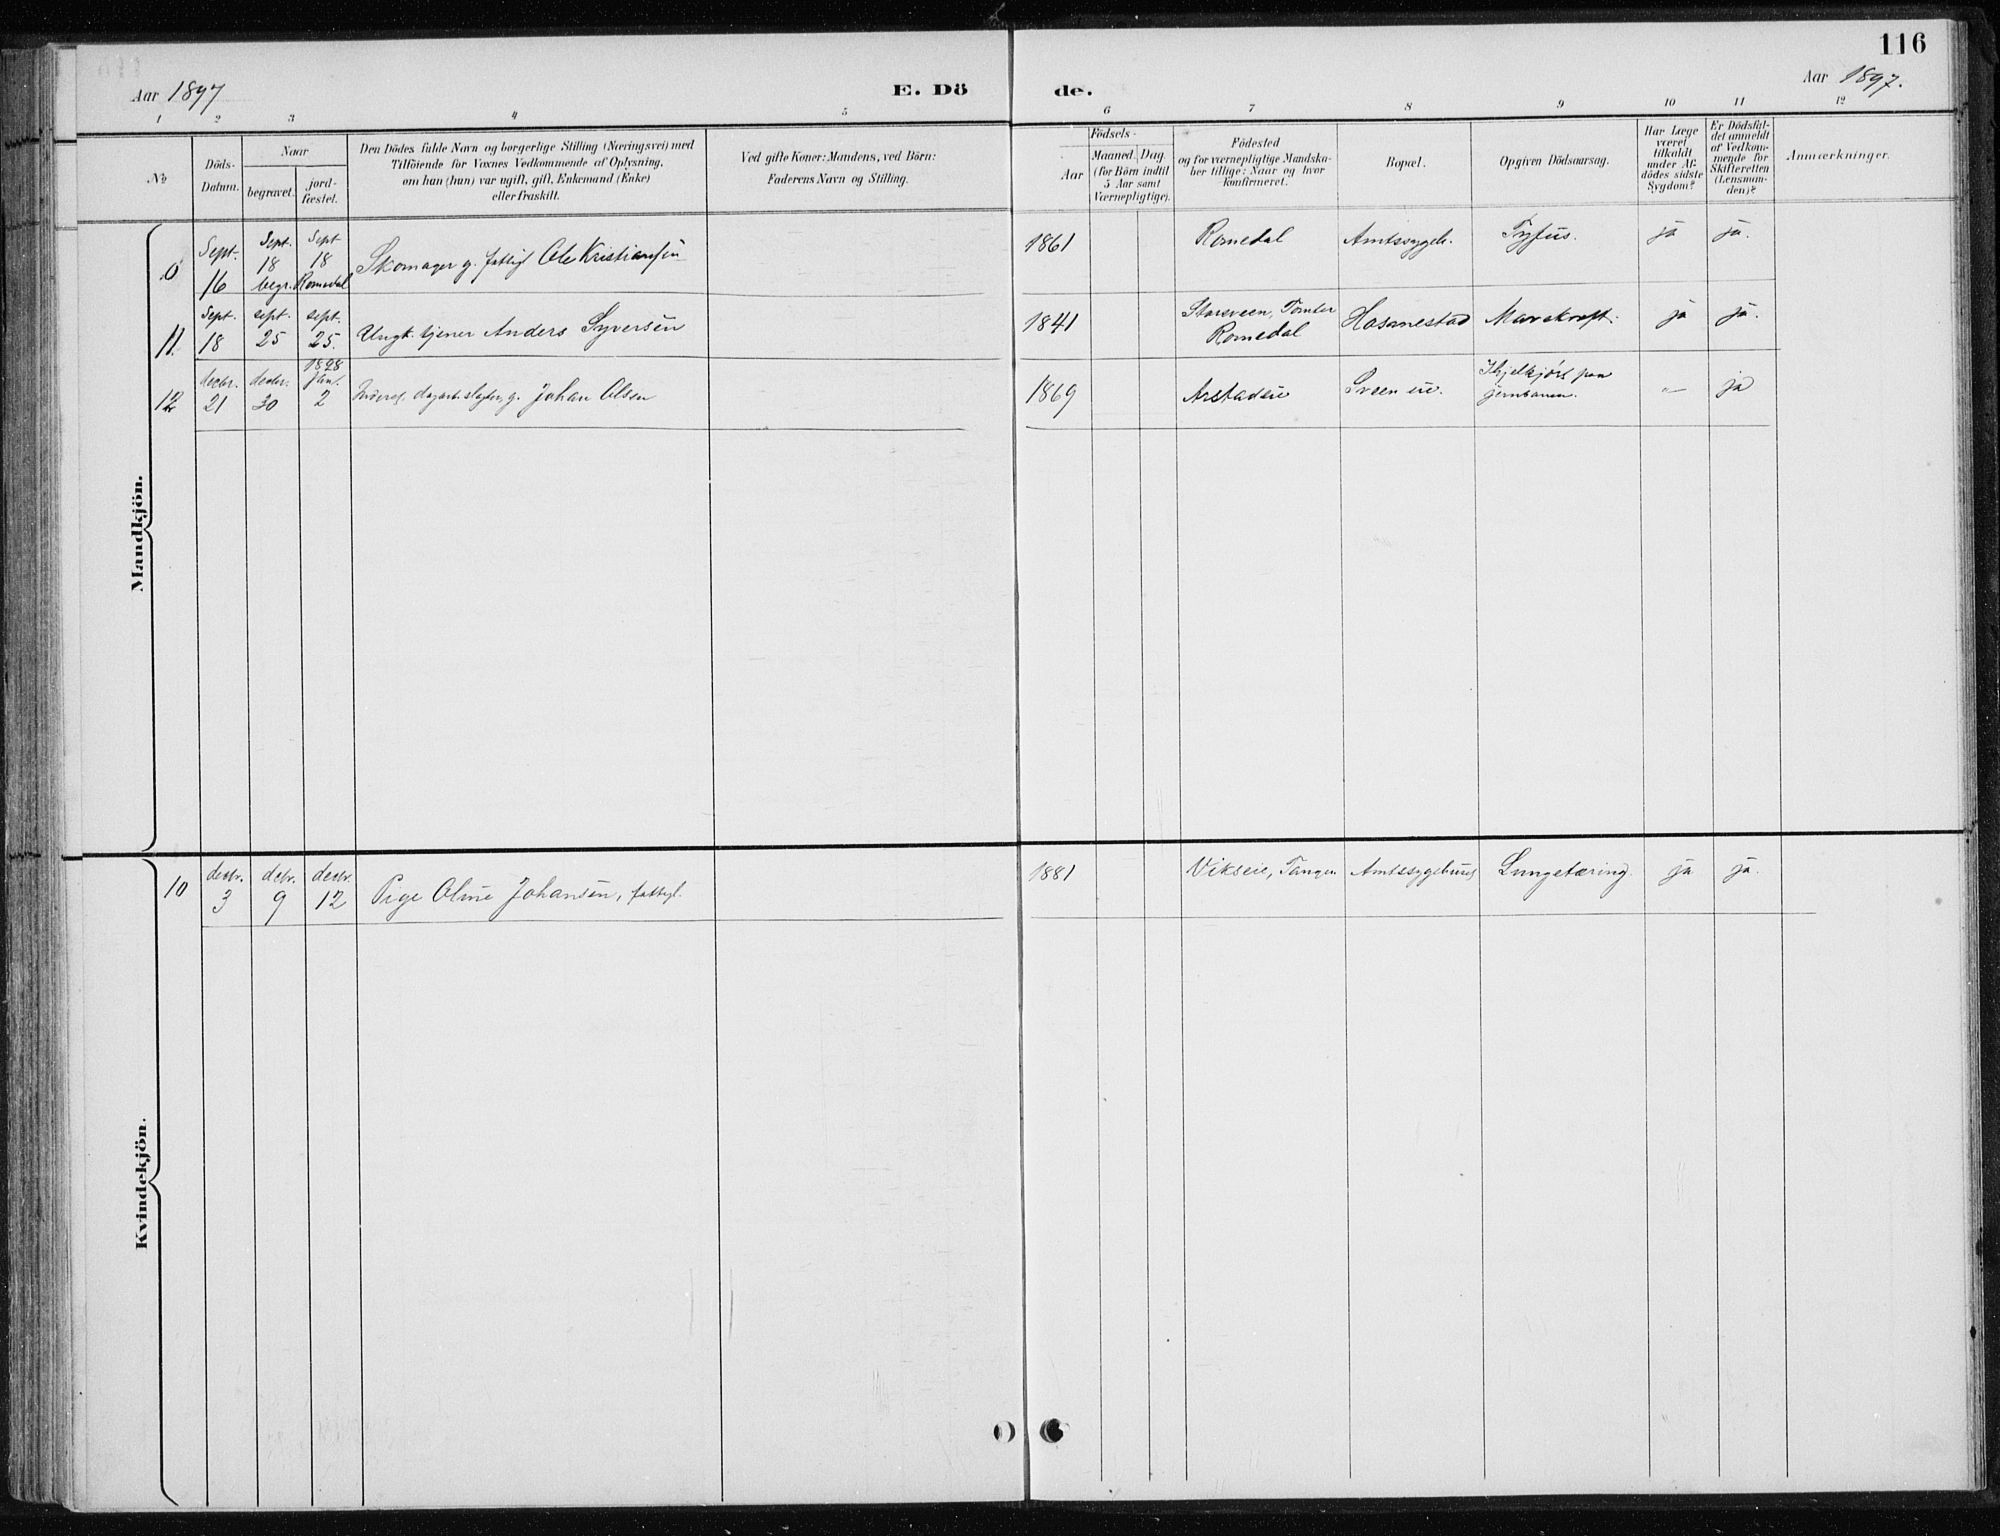 116
Aar 1897
E. Dö
de.
Aar 1897.
1 2 3 4 5 6 7 8 9 10 11 12
No
Döds-
Datum.
Naar
begravet.
jord-
fæstet.
Den Dödes fulde Navn og borgerlige Stilling (Næringsvei) med
Tilföiende for Voxnes Vedkommende af Oplysning,
om han (hun) var ugift, gift, Enkemand (Enke)
eller fraskilt.
Ved gifte Koner: Mandens, ved Börn:
Faderens Navn og Stilling.
Födsels-
Aar
Maaned.
Dag.
(for Börn indtil
5 Aar samt
Værnepligtige).
Födested
og for værnepligtige Mandska-
ber tillige: Naar og hvor
konfirmeret.
Bopæl.
Opgiven Dödsaarsag.
Har Læge
været
tilkaldt
under Af-
dödes sidste
Sygdom?
Er Dödsfal-
det anmeldt
af Vedkom-
mende for
Skifteretten
(Lensman-
den)?
Anmærkninger.
Mandkjön.
Sept. 16
Sept. 18 begr.
Sept 18 Romedal
Skomager g. fattigl Ole Kristiansen
1861
Romedal
Amtssygeh.
Tyfus.
ja
ja.
11.
Sept. 18
sept. 25
sept. 25.
Ungk. tjener Anders Syversen
1841
Storsveen, Tomter
Romedal
Hosmestad
Marskraft.
ja
ja.
12
decbr. 21
decbr. 30
1898 Jan. 2
g. Johan Olsen
1869
Arstadeie
Sveen eie.
Ihjelkjørt paa
jernbanen.
"
ja
Kvindekjön.
10
decbr. 3
debr. 9
decbr. 12
Pige Oline Johansen, fattigl.
1881
Vikseie, Tangen
Amtssygehuset
Lungetæring.
ja
ja.